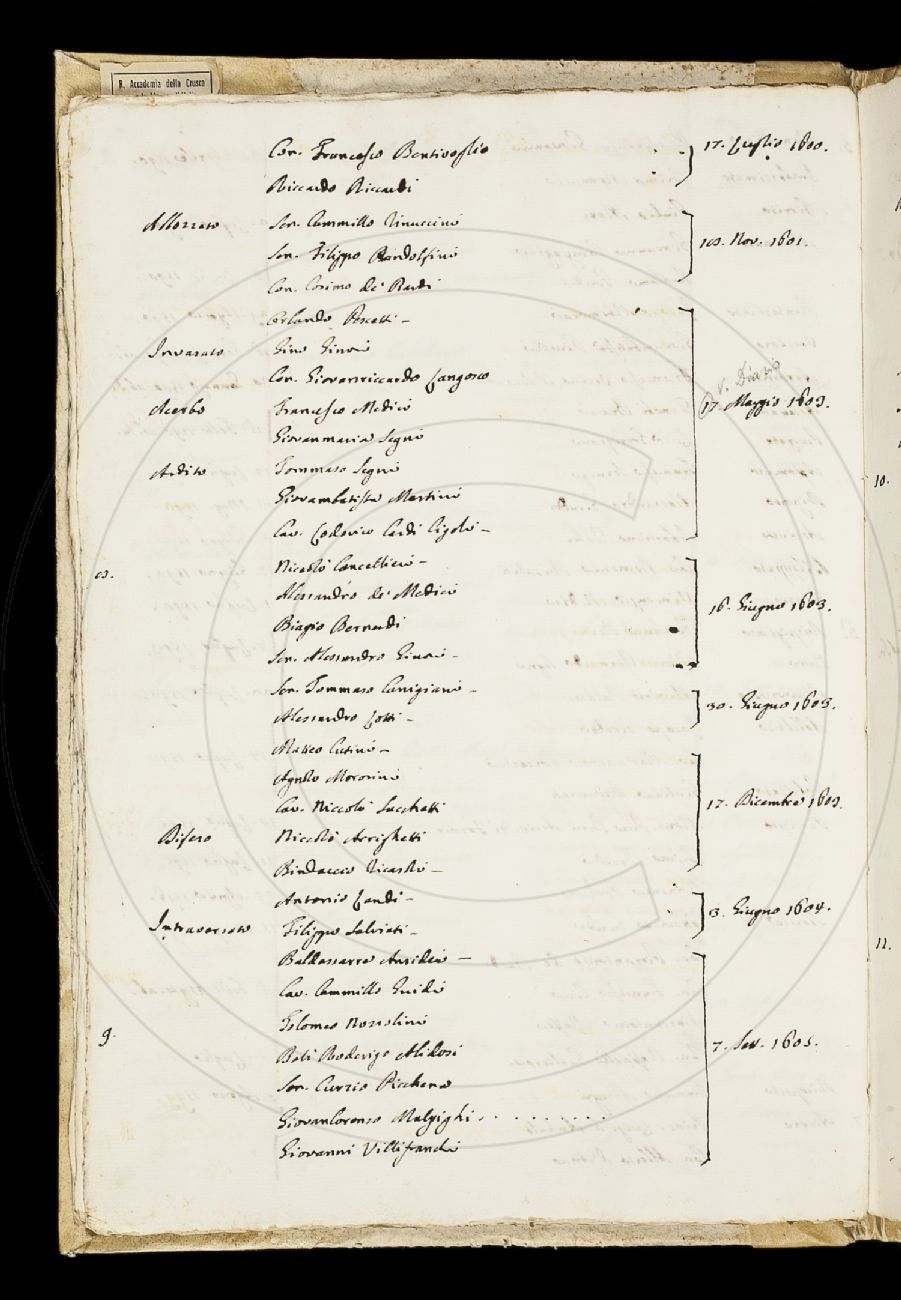 R. Accademia della Crusca
Con. Francesco Bentivoglio
17. Luglio 1600.
Riccardo Riccardi
Allozzato Sen. Cammillo Rinuccini
Sen. Filippo Pandolfini
Nov. 1601.
Con. Cosimo de' Bardi
Orlando Pescetti -
Invasato Gino Ginori
Con. Giovanriccardo Langosco
v. Diario
Acerbo Francesco Medici
17. Maggio 1603.
Giovanmaria Segni
Ardito Tommaso Segni
Giovambatista Martini
Cav. Lodovico Cardi Cigoli -
Niccolò Cancellieri -
Alessandro de' Medici
16. Giugno 1603.
Biagio Bernardi
Sen. Alessandro Giu
Sen. Tommaso Canigiani -
30. Giugno 1603.
Alessandro
Matteo Cutini -
Agnolo Morosini
Cav. Niccolò Sacchetti
17. Dicembre 1603.
Niccolò Arrighetti
Bindaccio Ricasoli -
Antonio Landi -
3. Giugno 1604.
Intraversato Filippo Salviati -
Baldassarre Ansidei -
Cav. Cammillo Guidi
Tolomeo Nozzolini
9. Balì Roderigo Alidosi
7. Set. 1605.
Sen. Curzio Picchena
Giovanlorenzo Malpighi . . . . . . . . .
Giovanni Villifranchi
10.
11.